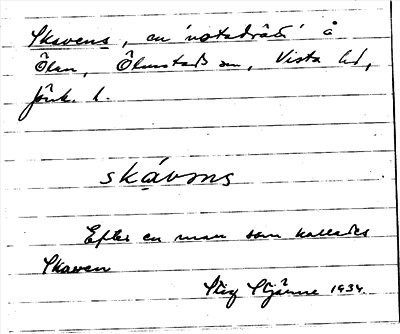 Skavens, en 'notadräkt' å
Ölen, Ölmstads sn, Vista hd,
Jönk. l.
skávəns
Efter en man som kallades
Skaven
Stig Stjärne 1934.